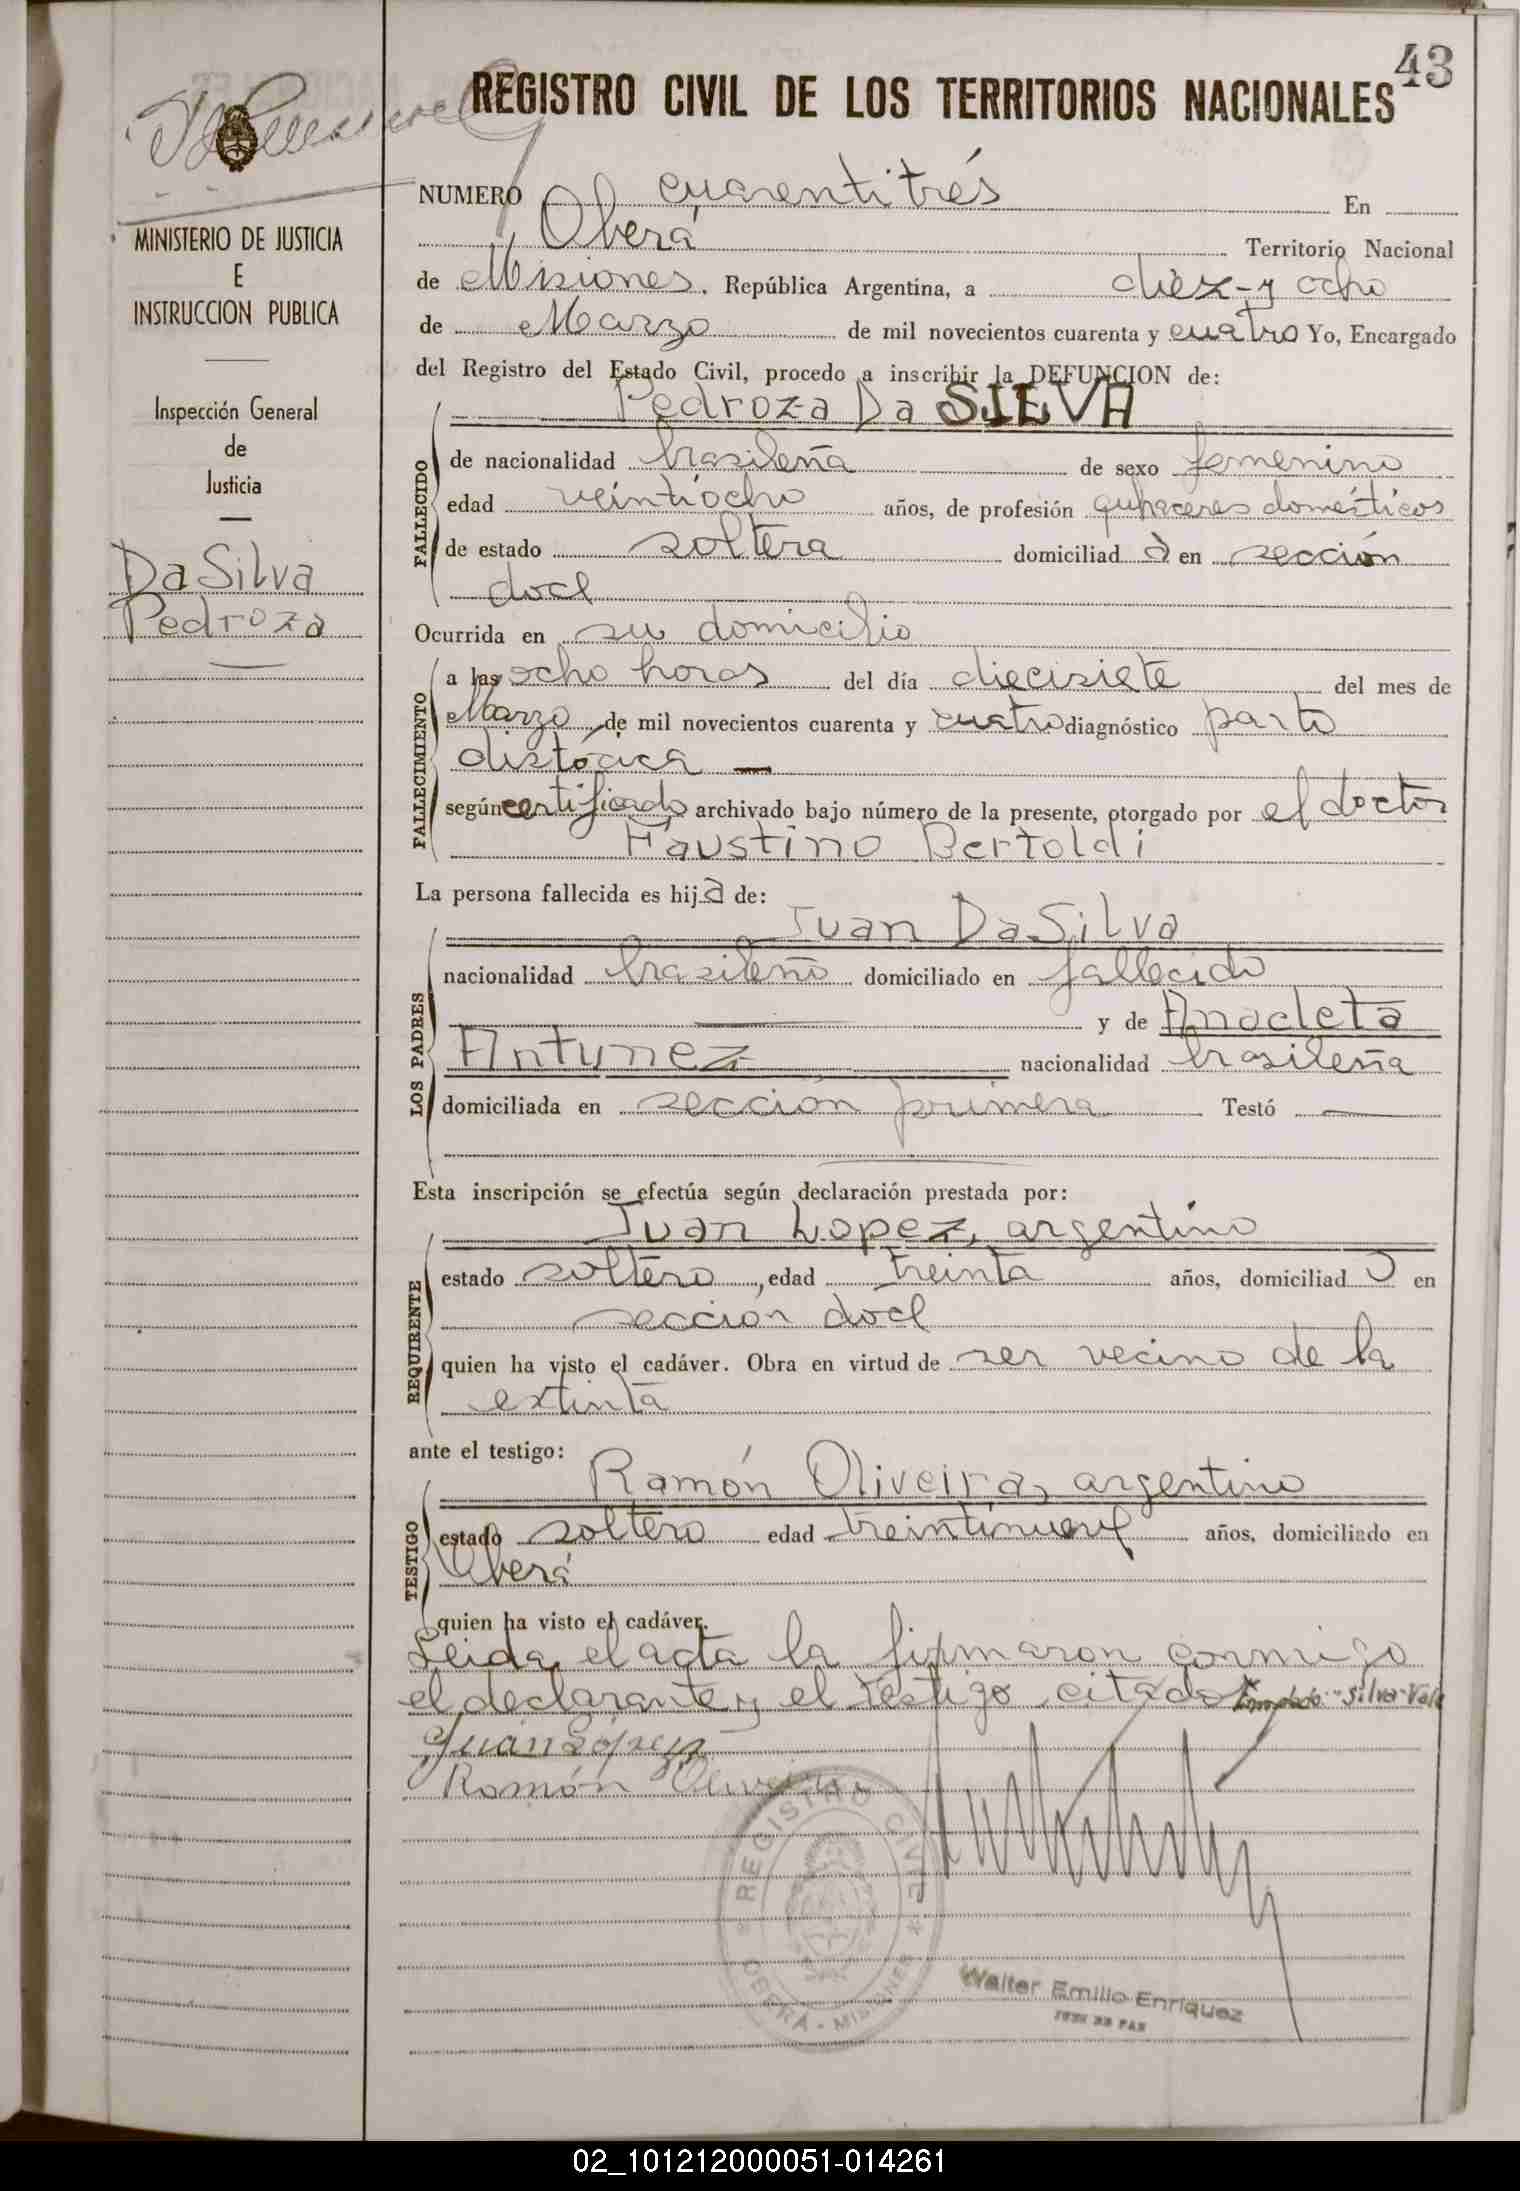 43
REGISTRO CIVIL DE LOS TERRITORIOS NACIONALES
NUMERO cuarentitrés En
Oberá Territorio Nacional
de Misiones. República Argentina, a diez y ocho
de Marzo de mil novecientos cuarenta y cuatro Yo, Encargado
del Registro del Estado Civil, procedo a inscribir la DEFUNCION de:
Pedroza Da SILVA
MINISTERIO DE JUSTICIA
E
INSTRUCCION PUBLICA
Inspección General
de
Justicia
Da Silva
Pedroza
FALLECIDO
de nacionalidad brasileña de sexo femenino
edad veintiocho años, de profesión quhaceres domésticos
de estado soltera domiciliad a en sección
doce
Ocurrida en su domicilio
FALLECIMIENTO
a las ocho horas del día diecisiete del mes de
Marzo de mil novecientos cuarenta y cuatro diagnóstico parto
distócica
según certificado archivado bajo número de la presente, otorgado por el doctor
Faustino Bertoldi
La persona fallecida es hija de:
LOS PADRES
Juan Da Silva
nacionalidad brasileño domiciliado en fallecido
y de Anacleta
Antunez nacionalidad brasileña
domiciliada en sección primera Testó
Esta inscripción se efectúa según declaración prestada por:
REQUIRENTE
Juan Lopez, argentino
estado soltero, edad treinta años, domiciliad o en
seccion doce
quien ha visto el cadáver. Obra en virtud de ser vecino de la
extinta
ante el testigo:
TESTIGO
Ramón Oliveira, argentino
estado soltero edad treintinueve años, domiciliado en
Oberá
quien ha visto el cadáver.
Leida el acta la firmaron conmigo
el declarante y el testigo citado Enmdado "Silva" Vale
Juan López
Ramón Oliveira
REGISTRO CIVIL
OBERÁ - MISIONES
Walter Emilio Enriquez
JUEZ DE PAZ
02_101212000051-014261